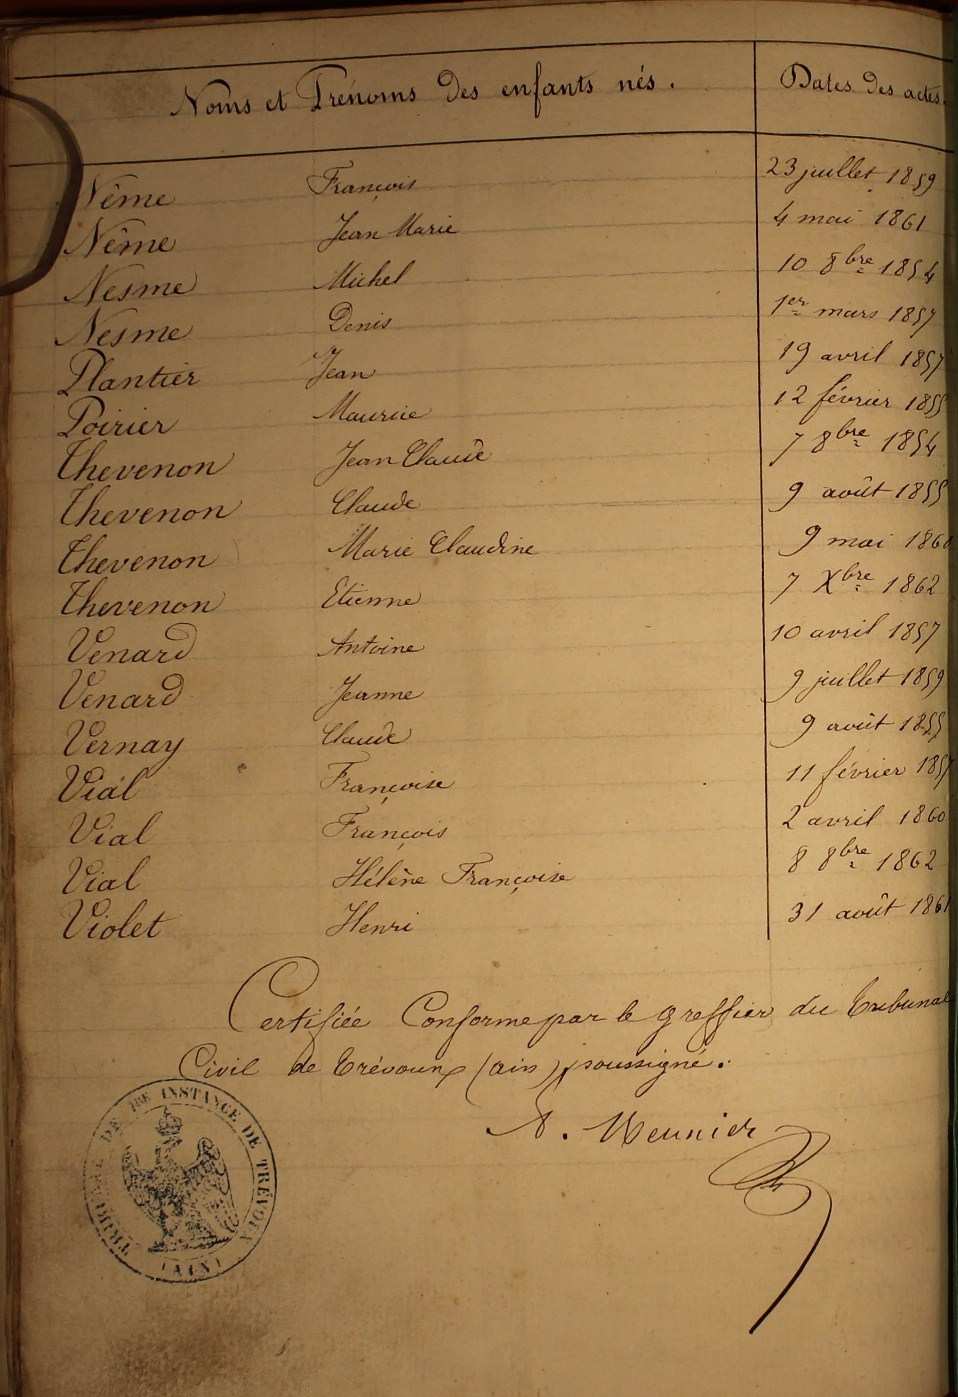 Noms et Prénoms des enfants nés. Dates des actes.
Nême François 23 juillet 1859
Nême Jean Marie 4 mai 1861
Nesme Michel 10 8bre 1854
Nesme Denis 1er mars 1857
Plantier Jean 19 avril 1857
Poirier Maurice 12 février 1855
Thevenon Jean Claude 7 8bre 1854
Thevenon Claude 9 août 1855
Thevenon Marie Claudine 9 mai 1860
Thevenon Etienne 7 Xbre 1862
Venard Antoine 10 avril 1857
Venard Jeanne 9 juillet 1859
Vernay Claude 9 août 1855
Vial Françoise 11 février 1857
Vial François 2 avril 1860
Vial Hélène Françoise 8 8bre 1862
Violet Henri 31 août 1861
Certifiée Conforme par le greffier du Tribunal
Civil de Trévoux (ain) soussigné.
A. Meunier
TRIBUNAL DE 1RE INSTANCE DE TRÉVOUX
(AIN)